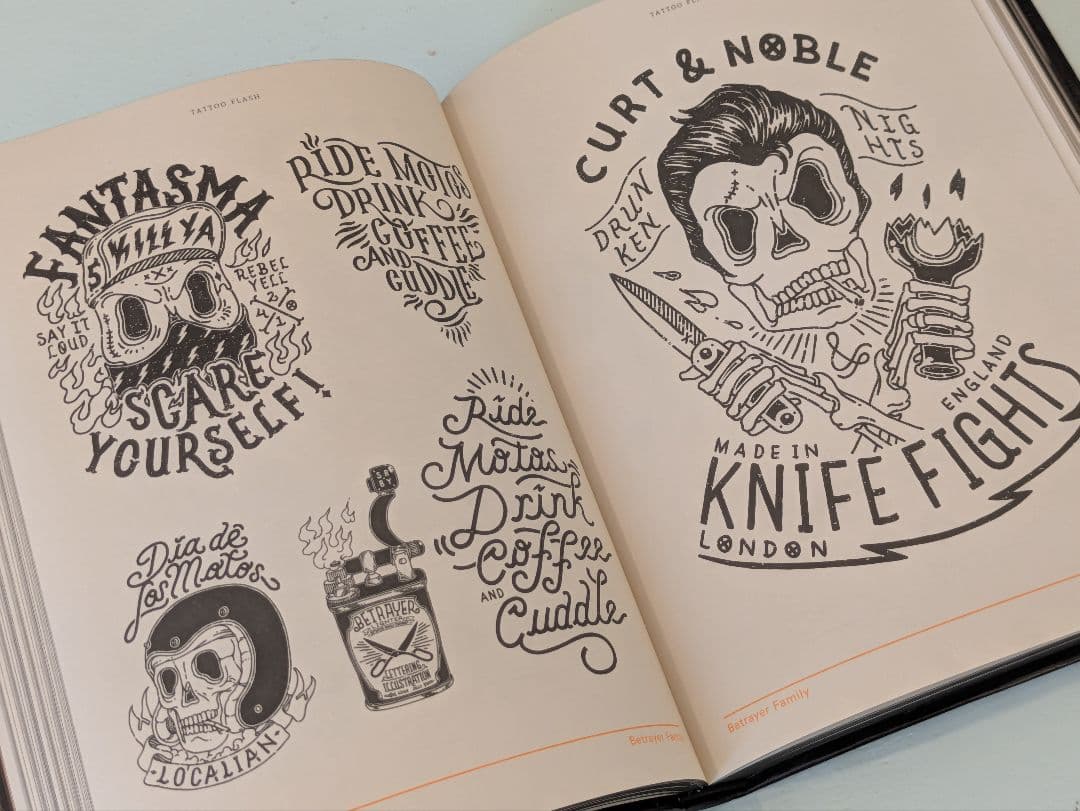 TATTOO FLASH
FANTASMA
KILLYA
SAY IT
LOUD
REBEL
YELL
SCARE
YOURSELF!
RIDE MOTOS
DRINK
COFFEE
AND
CUDDLE
Ride
Motos
Drink
Coffee
AND
Cuddle
Día de
los Motos
LOCALIAN
BETRAYER
LETTERING
ILLUSTRATION
Betrayer
TATTOO
CURT & NOBLE
DRUN
KEN
NIG
HTS
&
MADE IN
ENGLAND
KNIFE FIGHTS
LONDON
Betrayer Family